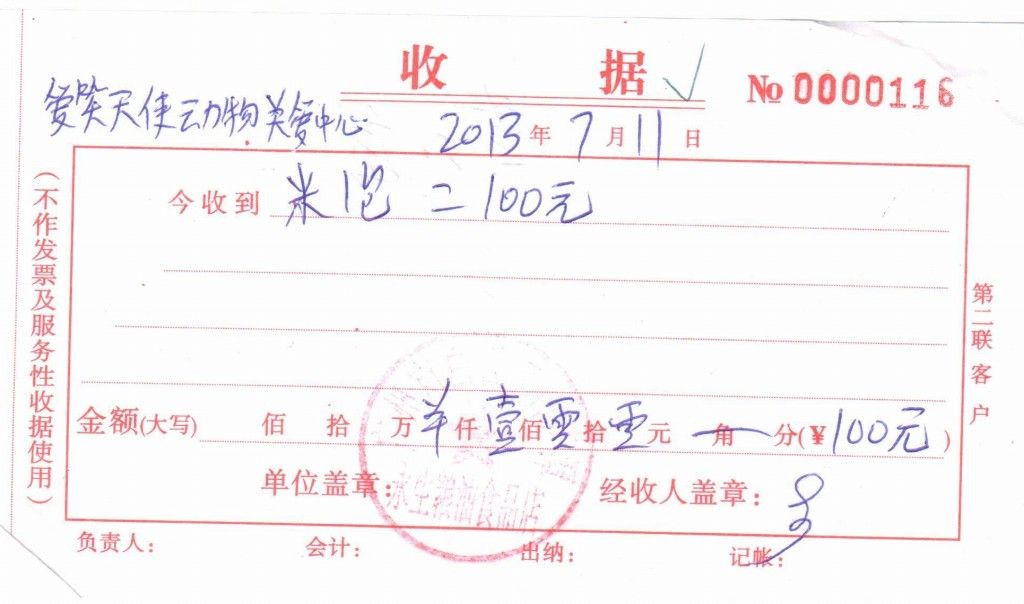 收 据
№ 0000116
爱笑天使动物关爱中心
2013 年 7 月 11 日
今收到 米1包 二100元
金额(大写) 佰 拾 万 羊 仟 壹 佰 零 拾 零 元 角 分(¥ 100元 )
单位盖章: 经收人盖章:
永生粮油食品店
负责人: 会计: 出纳: 记帐:
(不作发票及服务性收据使用)
第二联 客户